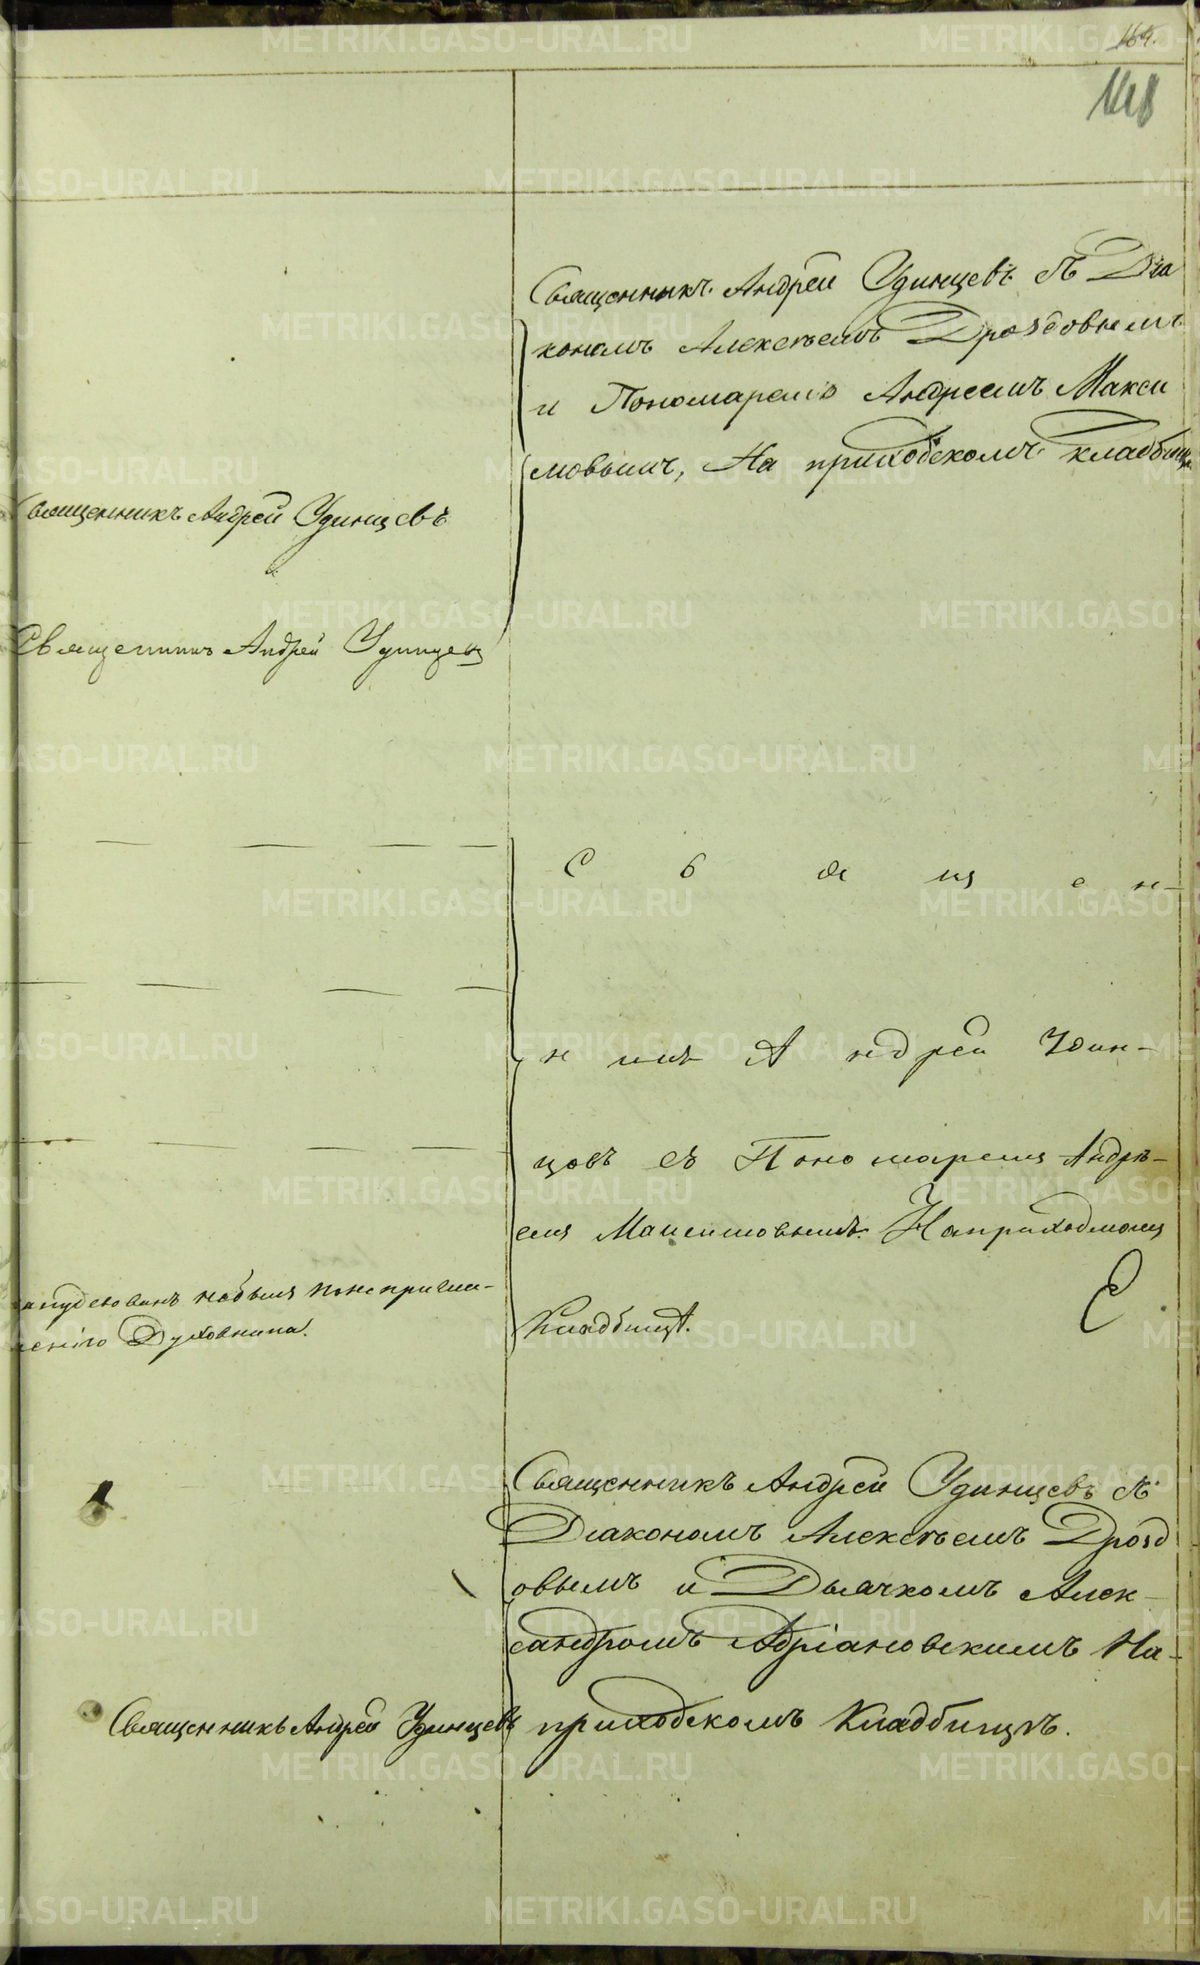 164.
148
Священникъ Андрей Удинцевъ съ Діа
кономъ Алексѣемъ Дроздовымъ
и Пономаремъ Андреемъ Макси
мовымъ, На приходскомъ кладбищѣ
Священникъ Андрей Удинцевъ
Священникъ Андрей Удинцевъ
С в я щ е н-
н икъ А ндрей Удин-
цовъ съ Пономаремъ Андрѣ-
емъ Максимовымъ. На приходскомъ
Кладбищѣ.
небылъ по непригла-
Духовника.
Священникъ Андрей Удинцевъ съ
Діакономъ Алексѣемъ Дрозд
овымъ и Дьячкомъ Алек-
сандромъ Адріановскимъ На-
приходскомъ Кладбищѣ.
Священникъ Андрей Удинцевъ
METRIKI.GASO-URAL.RU